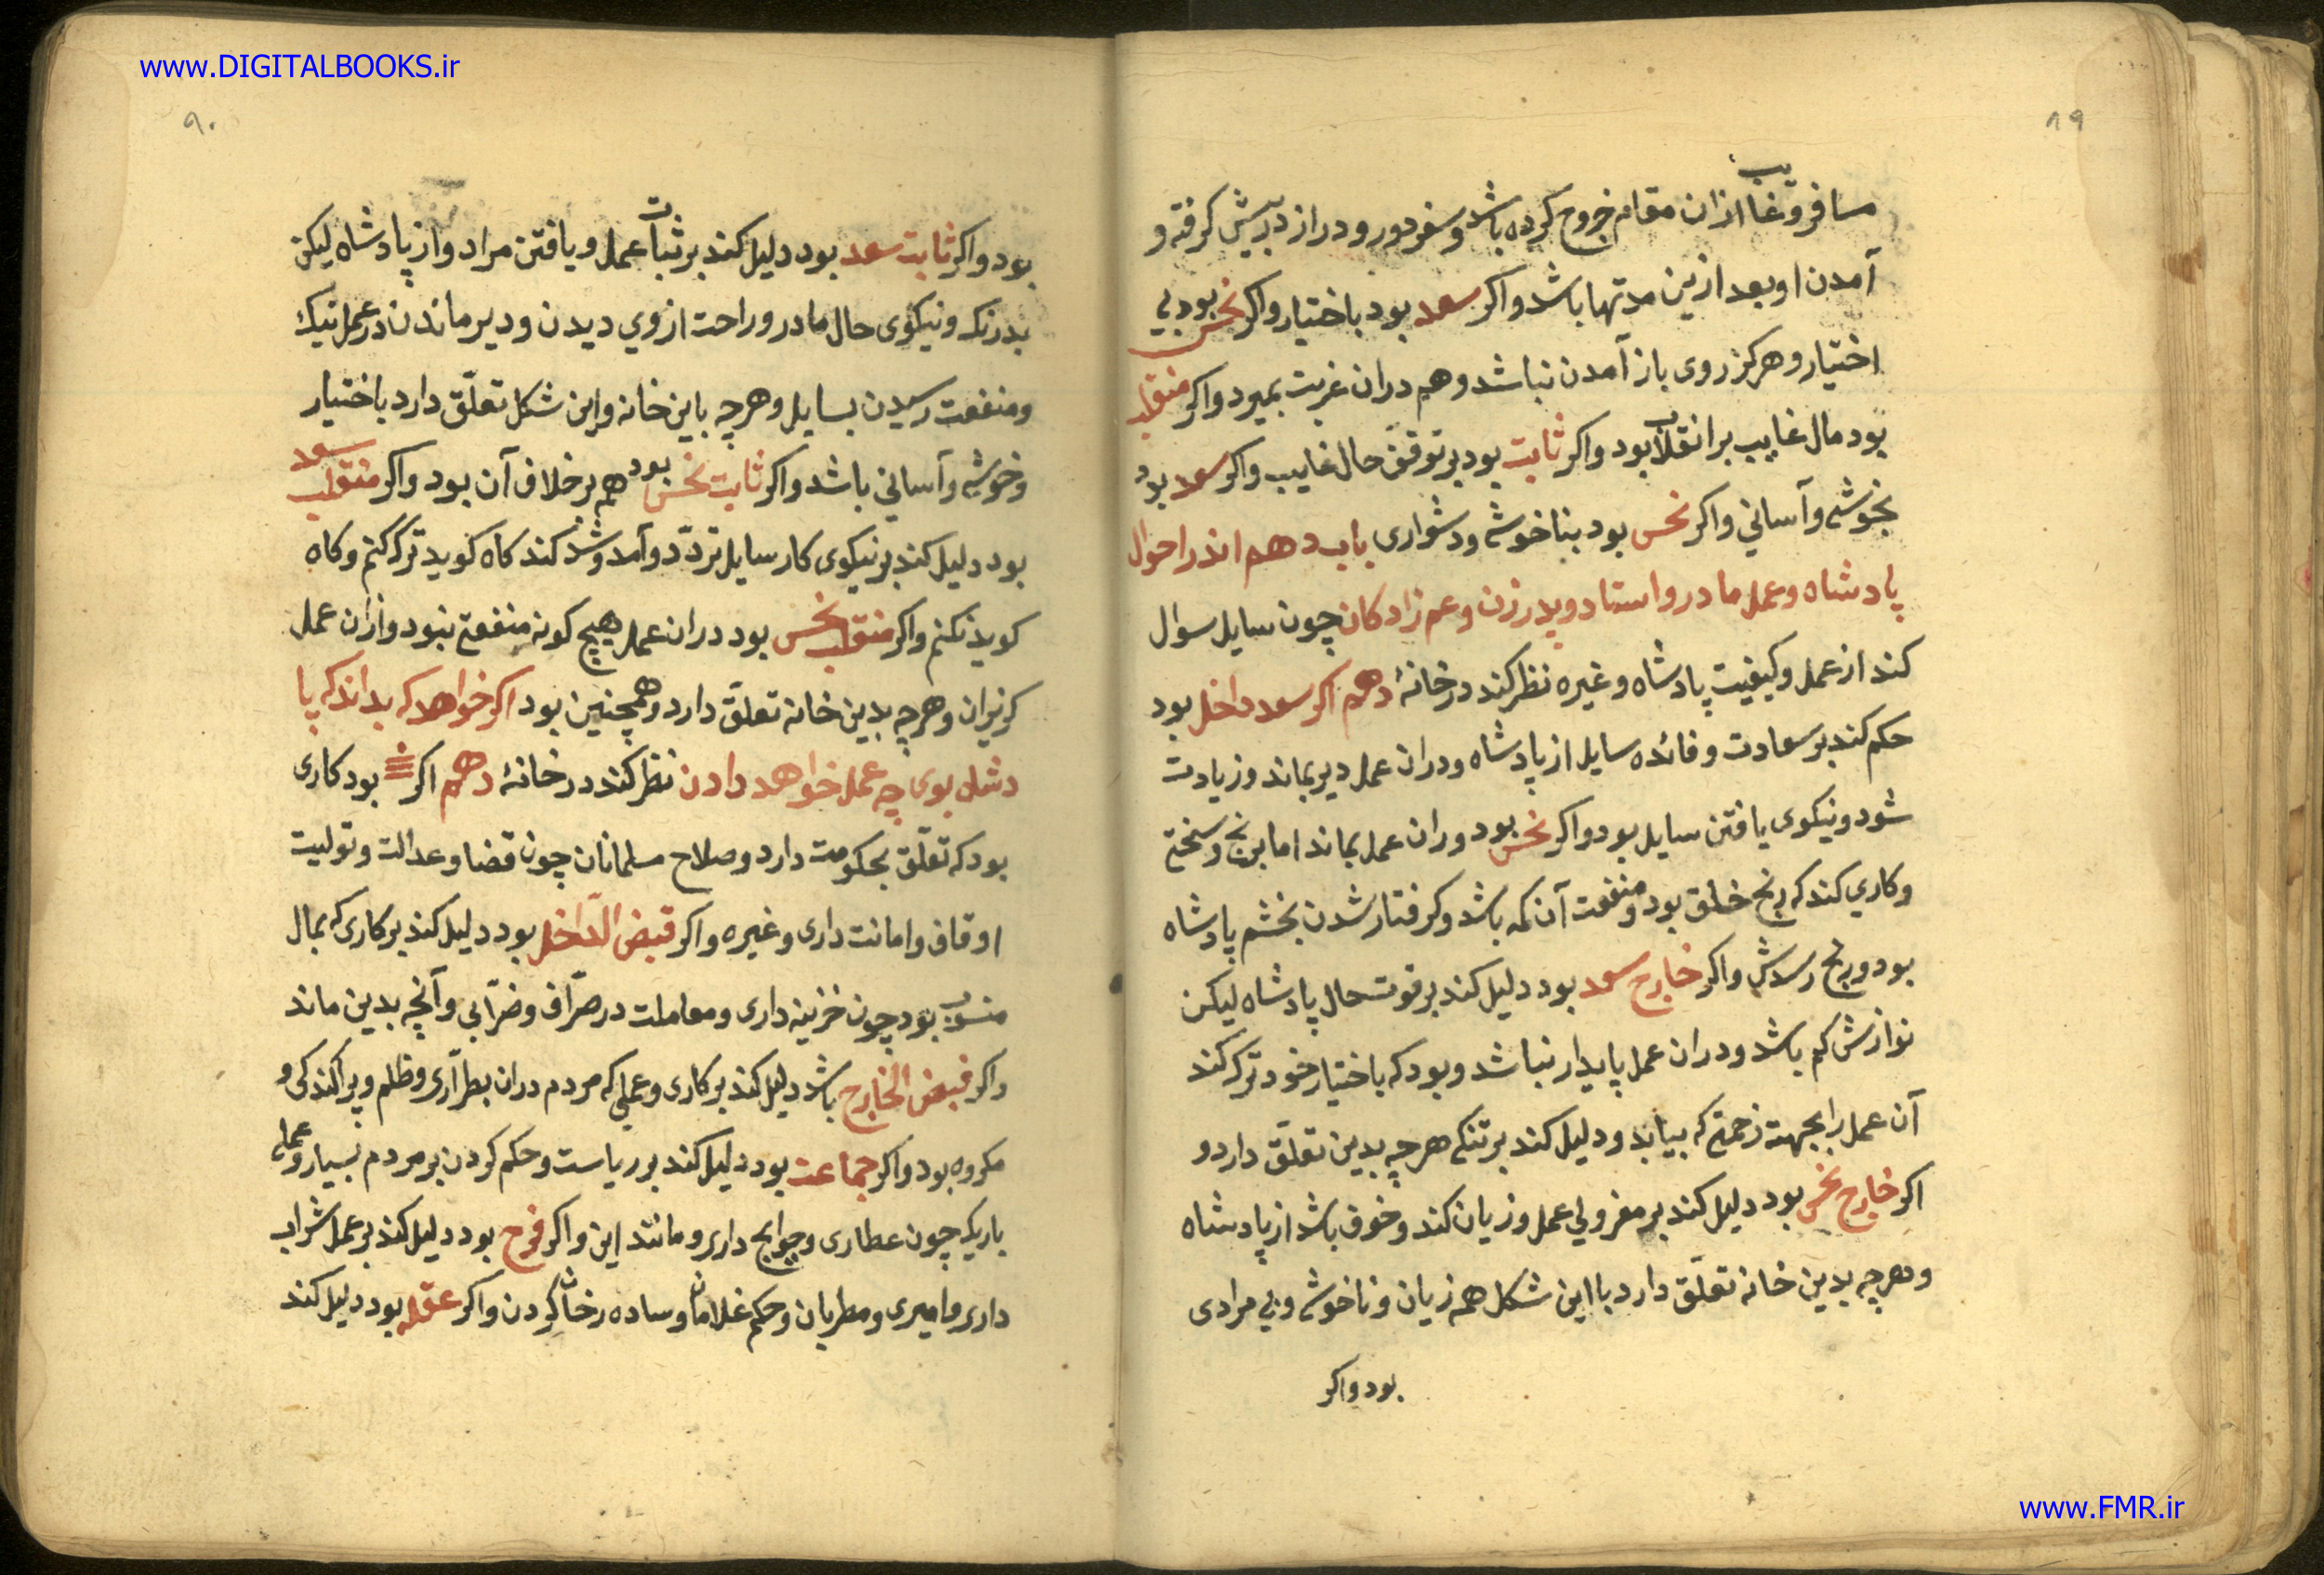 www.DIGITALBOOKS.ir
۸۹
مسافر و غایب ازان مقام خروج کرده باشد و سفر دور و دراز در پیش کرفته و
آمدن او بعد ازین مدتها باشد و اکر سعد بود باختیار و اکر نحس بود بی
اختیار و هرکز روی باز آمدن نباشد و هم دران غربت بمیرد و اکر منقلب
بود مال غایب بر انقلاب بود و اکر ثابت بود بر توقف حال غایب و اکر سعد بود
بخوشی و آسانی و اکر نحس بود بناخوشی و دشواری باب دهم اندر احوال
پادشاه و عمل مادر و استاد و پدر زن و عم زادکان چون سایل سوال
کند از عمل و کیفیت پادشاه و غیره نظر کند در خانهٔ دهم اکر سعد داخل بود
حکم کند بر سعادت و فائده سایل از پادشاه و دران عمل دیر بماند و زیادت
شود و نیکوی یافتن سایل بود و اکر نحس بود دران عمل بماند اما برنج و سختی
و کاری کند که رنج خلق بود و منفعت آن کمه باشد و کرفتار شدن بخشم پادشاه
بود و رنج رسدش و اکر خارج سعد بود دلیل کند بر قوت حال پادشاه لیکن
نوازش کم باشد و دران عمل پایدار نباشد و بود که باختیار خود ترک کند
آن عمل را بجهت زحمتی که بیابد و دلیل کند بر تنکی هرچه بدین تعلّق دارد و
اکر خارج نحس بود دلیل کند بر معزولی عمل و زیان کند و خوف باشد از پادشاه
و هرچه بدین خانه تعلّق دارد با این شکل همه زیان و ناخوشی و بی مرادی
بود و اکر
۹۰
بود و اکر ثابت سعد بود دلیل کند بر ثبات عمل و یافتن مراد و از پادشاه لیکن
بدرنک و نیکوی حال مادر و راحت از وی دیدن و دیر ماندن در عمل نیک
و منفعت رسیدن بسایل و هرچه باین خانه و این شکل تعلّق دارد باختیار
و خوشی و آسانی باشد و اکر ثابت نحس بود هم بر خلاف آن بود و اکر منقلب سعد
بود دلیل کند بر نیکوی کار سایل تردّد و آمد و شد کند کاه کوید ترک کنم و کاه
کوید نکنم و اکر منقلب نحس بود دران عمل هیچ کونه منفعتی نبود و ازان عمل
کریزان و هرچه بدین خانه تعلّق دارد و همچنین بود اکر خواهد که بداند که پا
دشاه بوی چه عمل خواهد دادن نظر کند در خانهٔ دهم اکر بود کاری
بود که تعلّق بحکومت دارد و صلاح مسلمانان چون قضا و عدالت و تولیت
اوقاف و امانت داری و غیره و اکر قبض الدّاخل بود دلیل کند بر کاری که بمال
منسوب بود چون خزینه داری و معاملت در صرّاف و ضرّابی و آنچه بدین ماند
و اکر قبض الخارج باشد دلیل کند بر کاری و عملی که مردم دران بطرّاری و ظلم و پراکندکی و
مکروه بود و اکر جماعت بود دلیل کند بر ریاست و حکم کردن بر مردم بسیار و عملی
باریک چون عطاری و حوایج داری و مانند این و اکر فرح بود دلیل کند بر عمل شراب
داری و امیری و مطربان و حکم غلامان و ساده رخان کردن و اکر عقله بود دلیل کند
www.FMR.ir